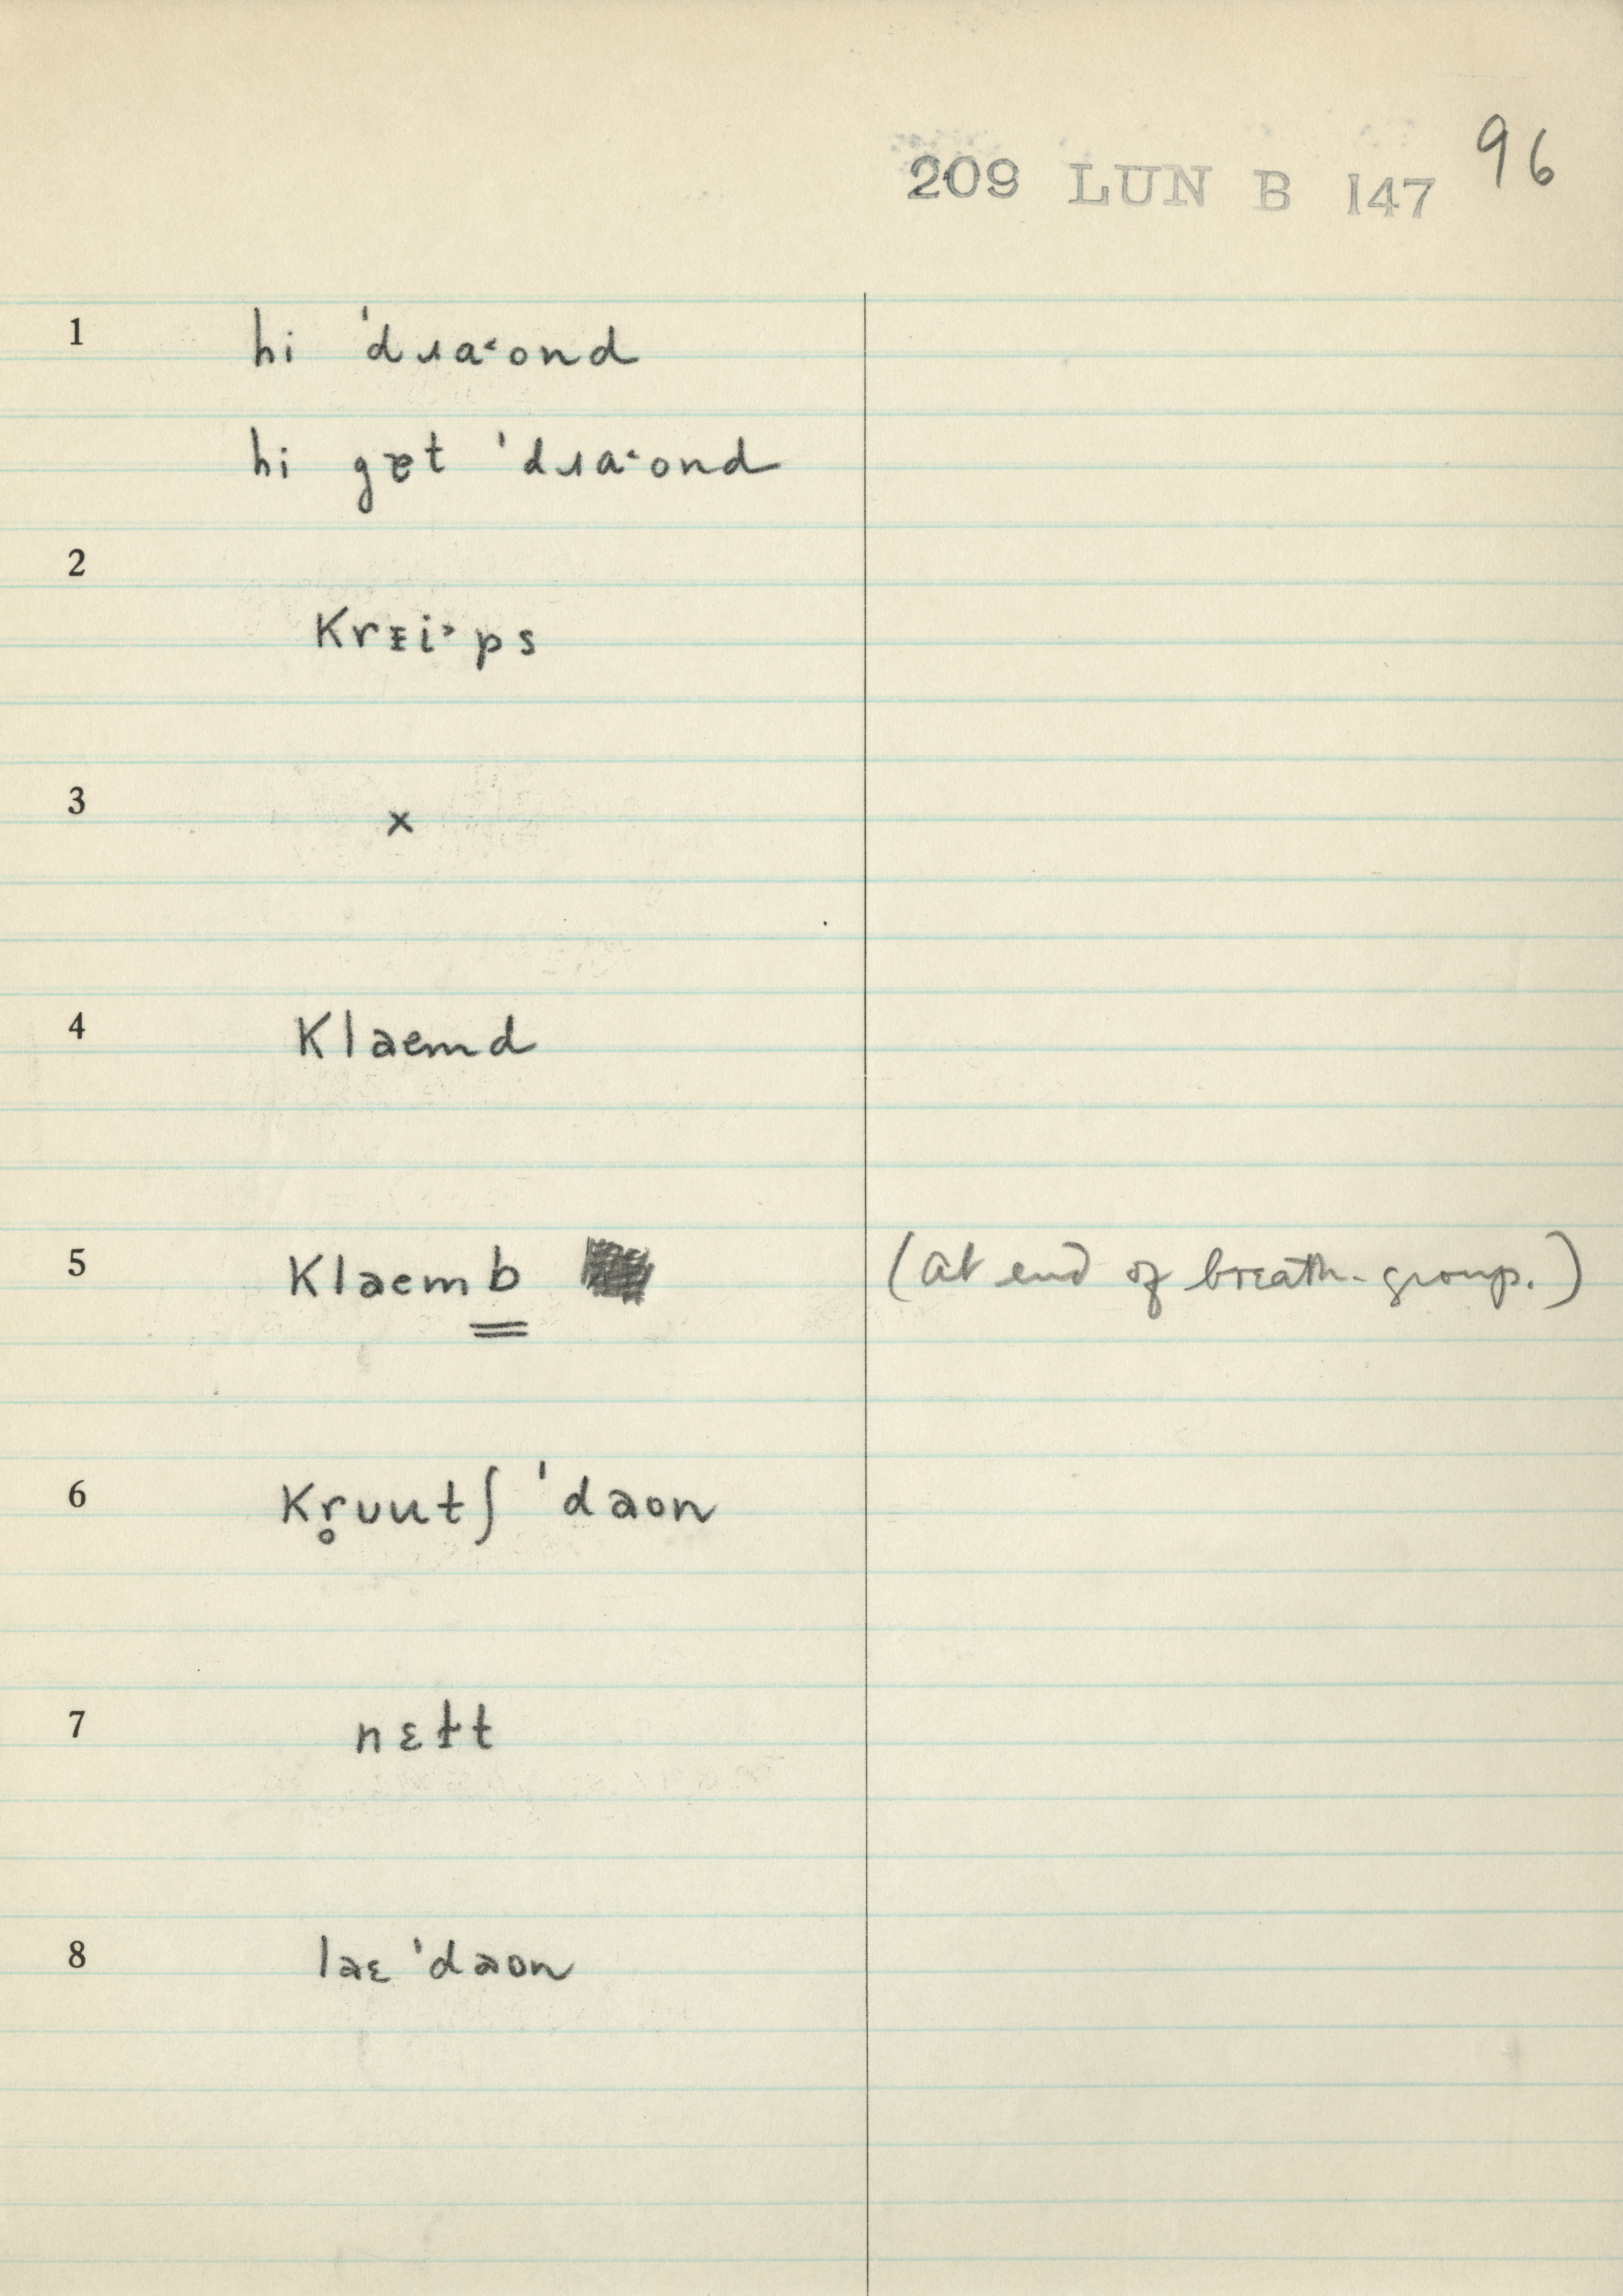 209 LUN B 147 96
1 hi ˈdɹa˂ond
hi gɐt ˈdɹa˂ond
2
Krᴇi˃ps
3 x
4 Klaemd
5 Klaemb (at end of breath-group.)
6 Kr̥ʋutʃ ˈdaon
7 nɛɫt
8 laɛ ˈdaon